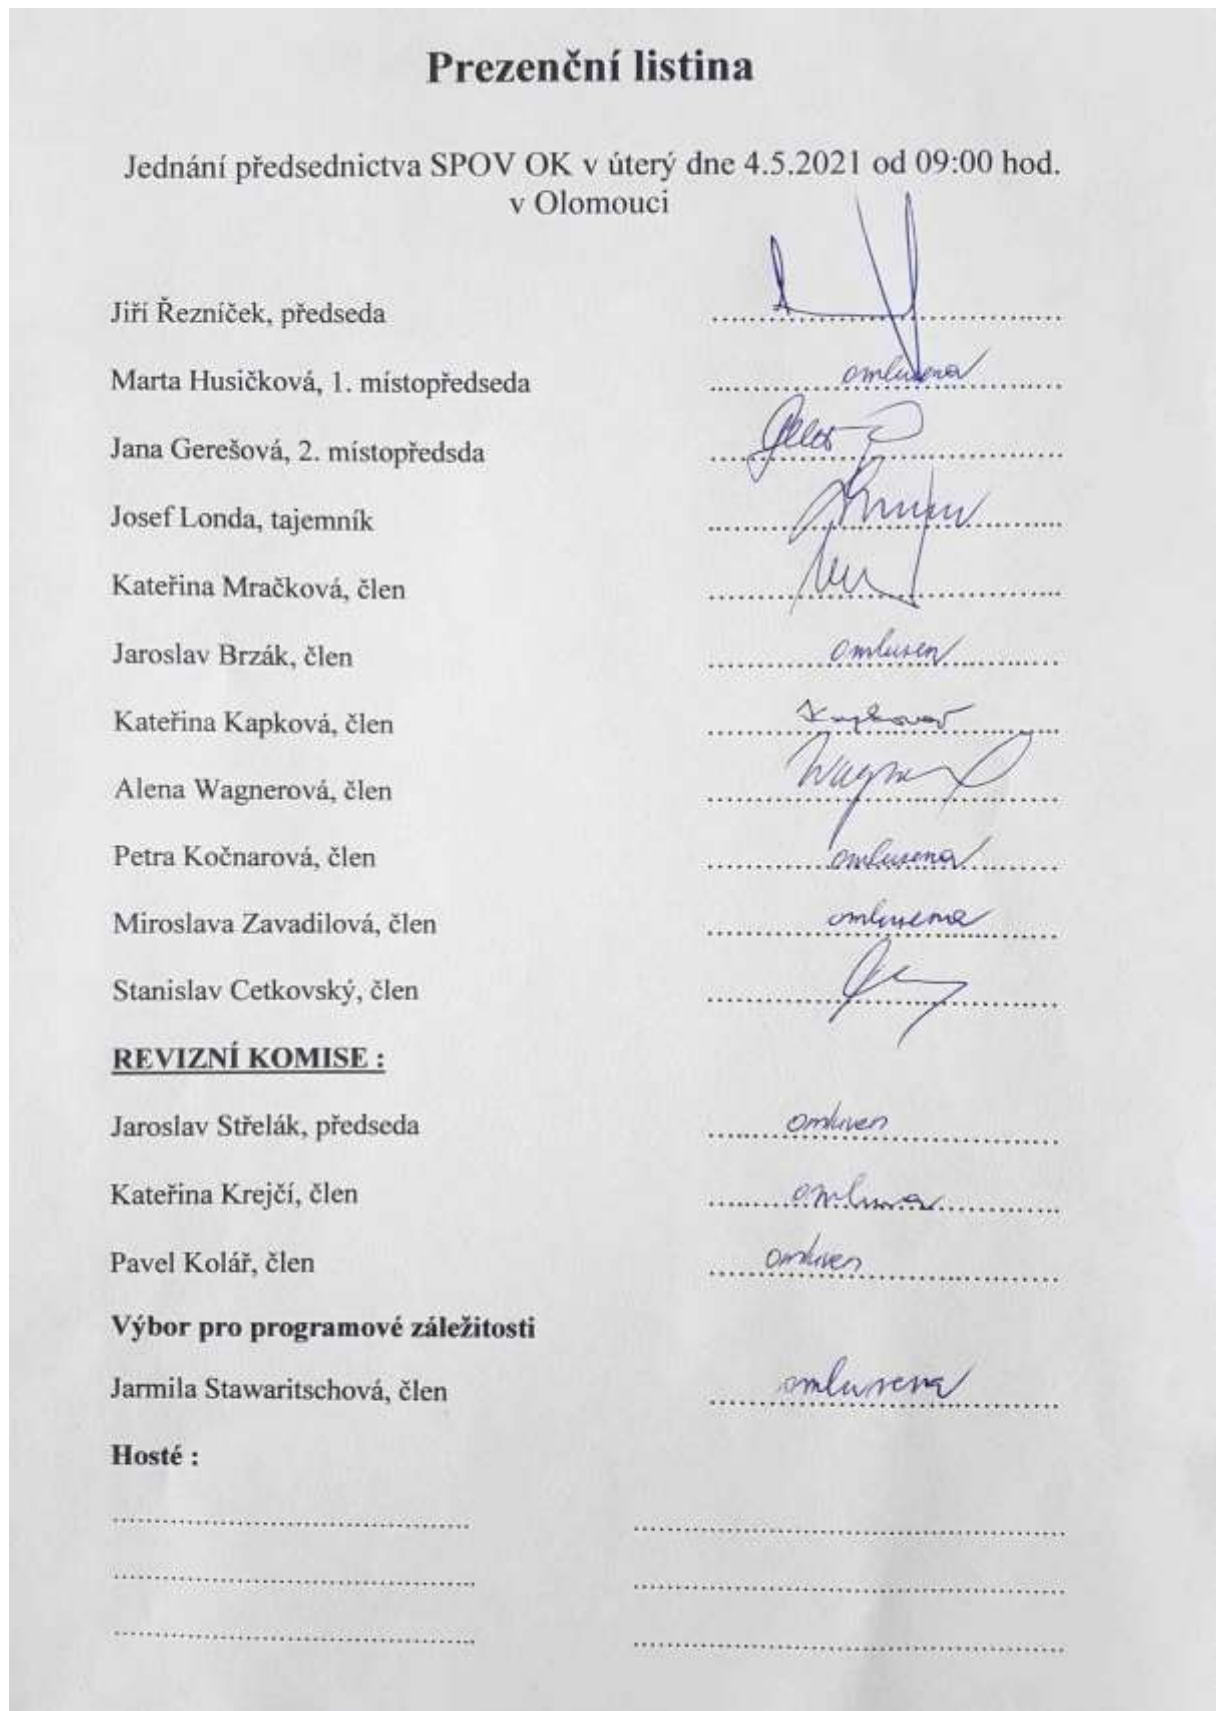 Prezenční listina
Jednání předsednictva SPOV OK v úterý dne 4.5.2021 od 09:00 hod.
v Olomouci
Jiří Řezníček, předseda
Marta Husičková, 1. místopředseda omluvena
Jana Gerešová, 2. místopředsda
Josef Londa, tajemník
Kateřina Mračková, člen
Jaroslav Brzák, člen omluven
Kateřina Kapková, člen Kapková
Alena Wagnerová, člen
Petra Kočnarová, člen omluvena
Miroslava Zavadilová, člen omluvena
Stanislav Cetkovský, člen
REVIZNÍ KOMISE :
Jaroslav Střelák, předseda omluven
Kateřina Krejčí, člen
Pavel Kolář, člen omluven
Výbor pro programové záležitosti
Jarmila Stawaritschová, člen omluvena
Hosté :